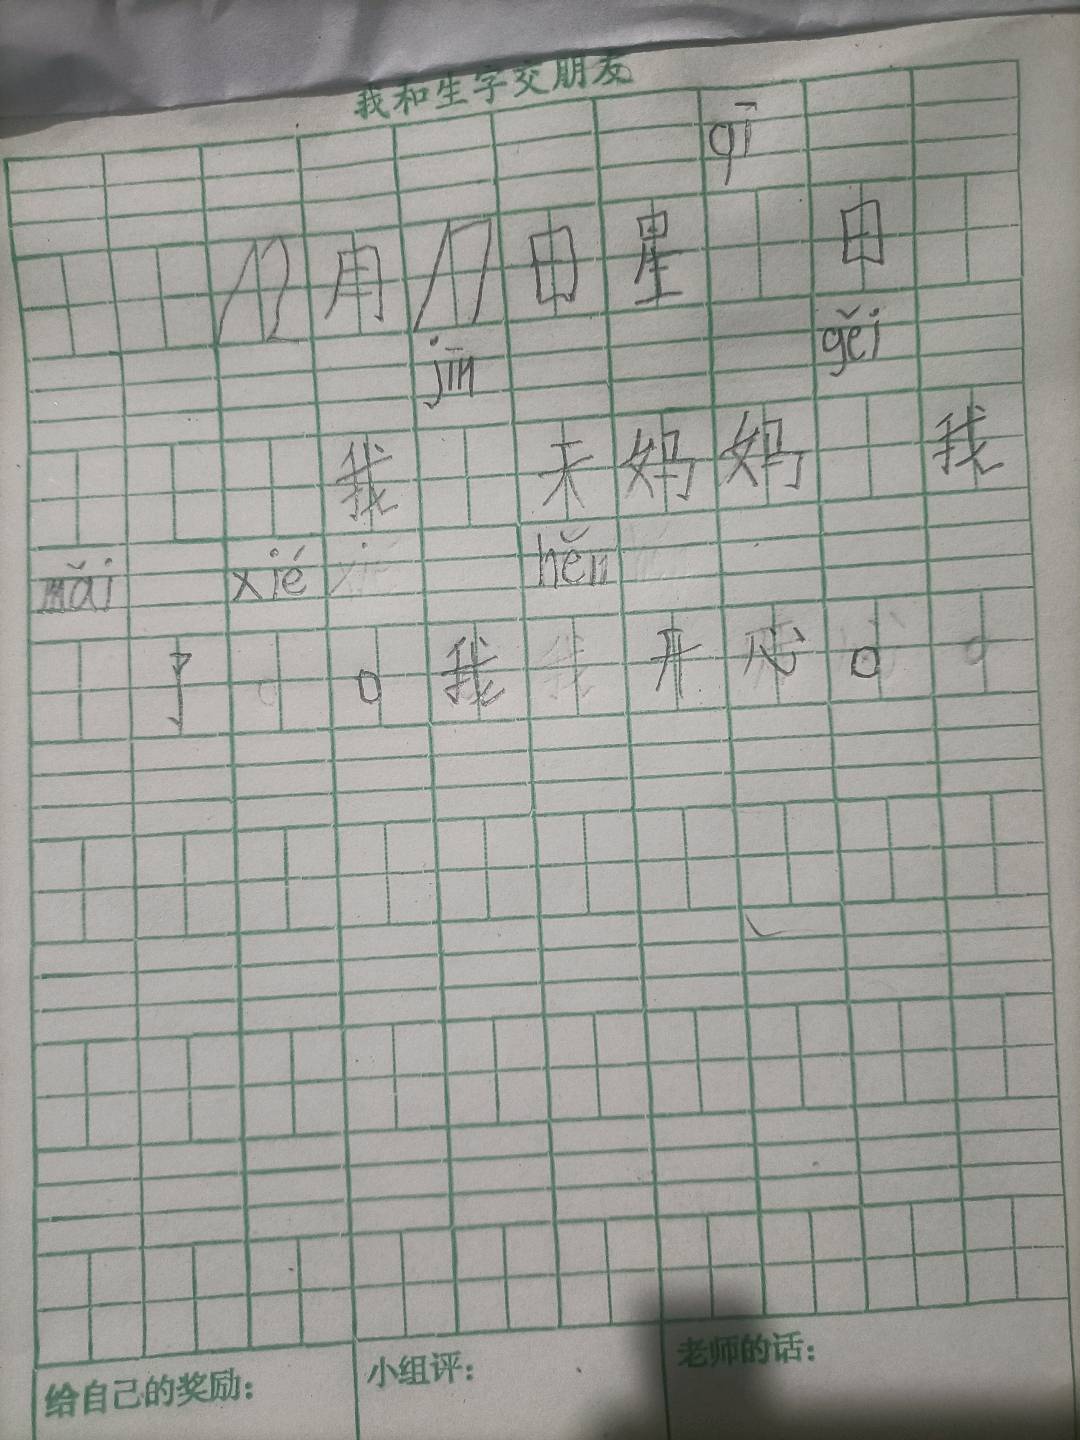 我和生字交朋友
qī
八月八日星 日
jīn gěi
我 天妈妈 我
mǎi xié hěn
了。我开心。
给自己的奖励： 小组评： 老师的话：